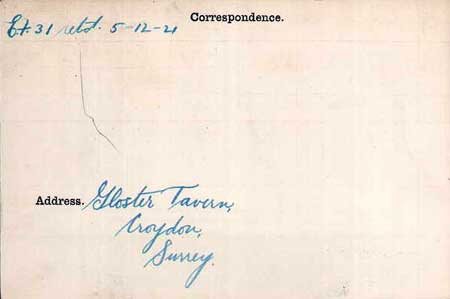 Correspondence.
Ex. 31 retd. 5-12-21
Address. Gloster Tavern,
Croydon,
Surrey.